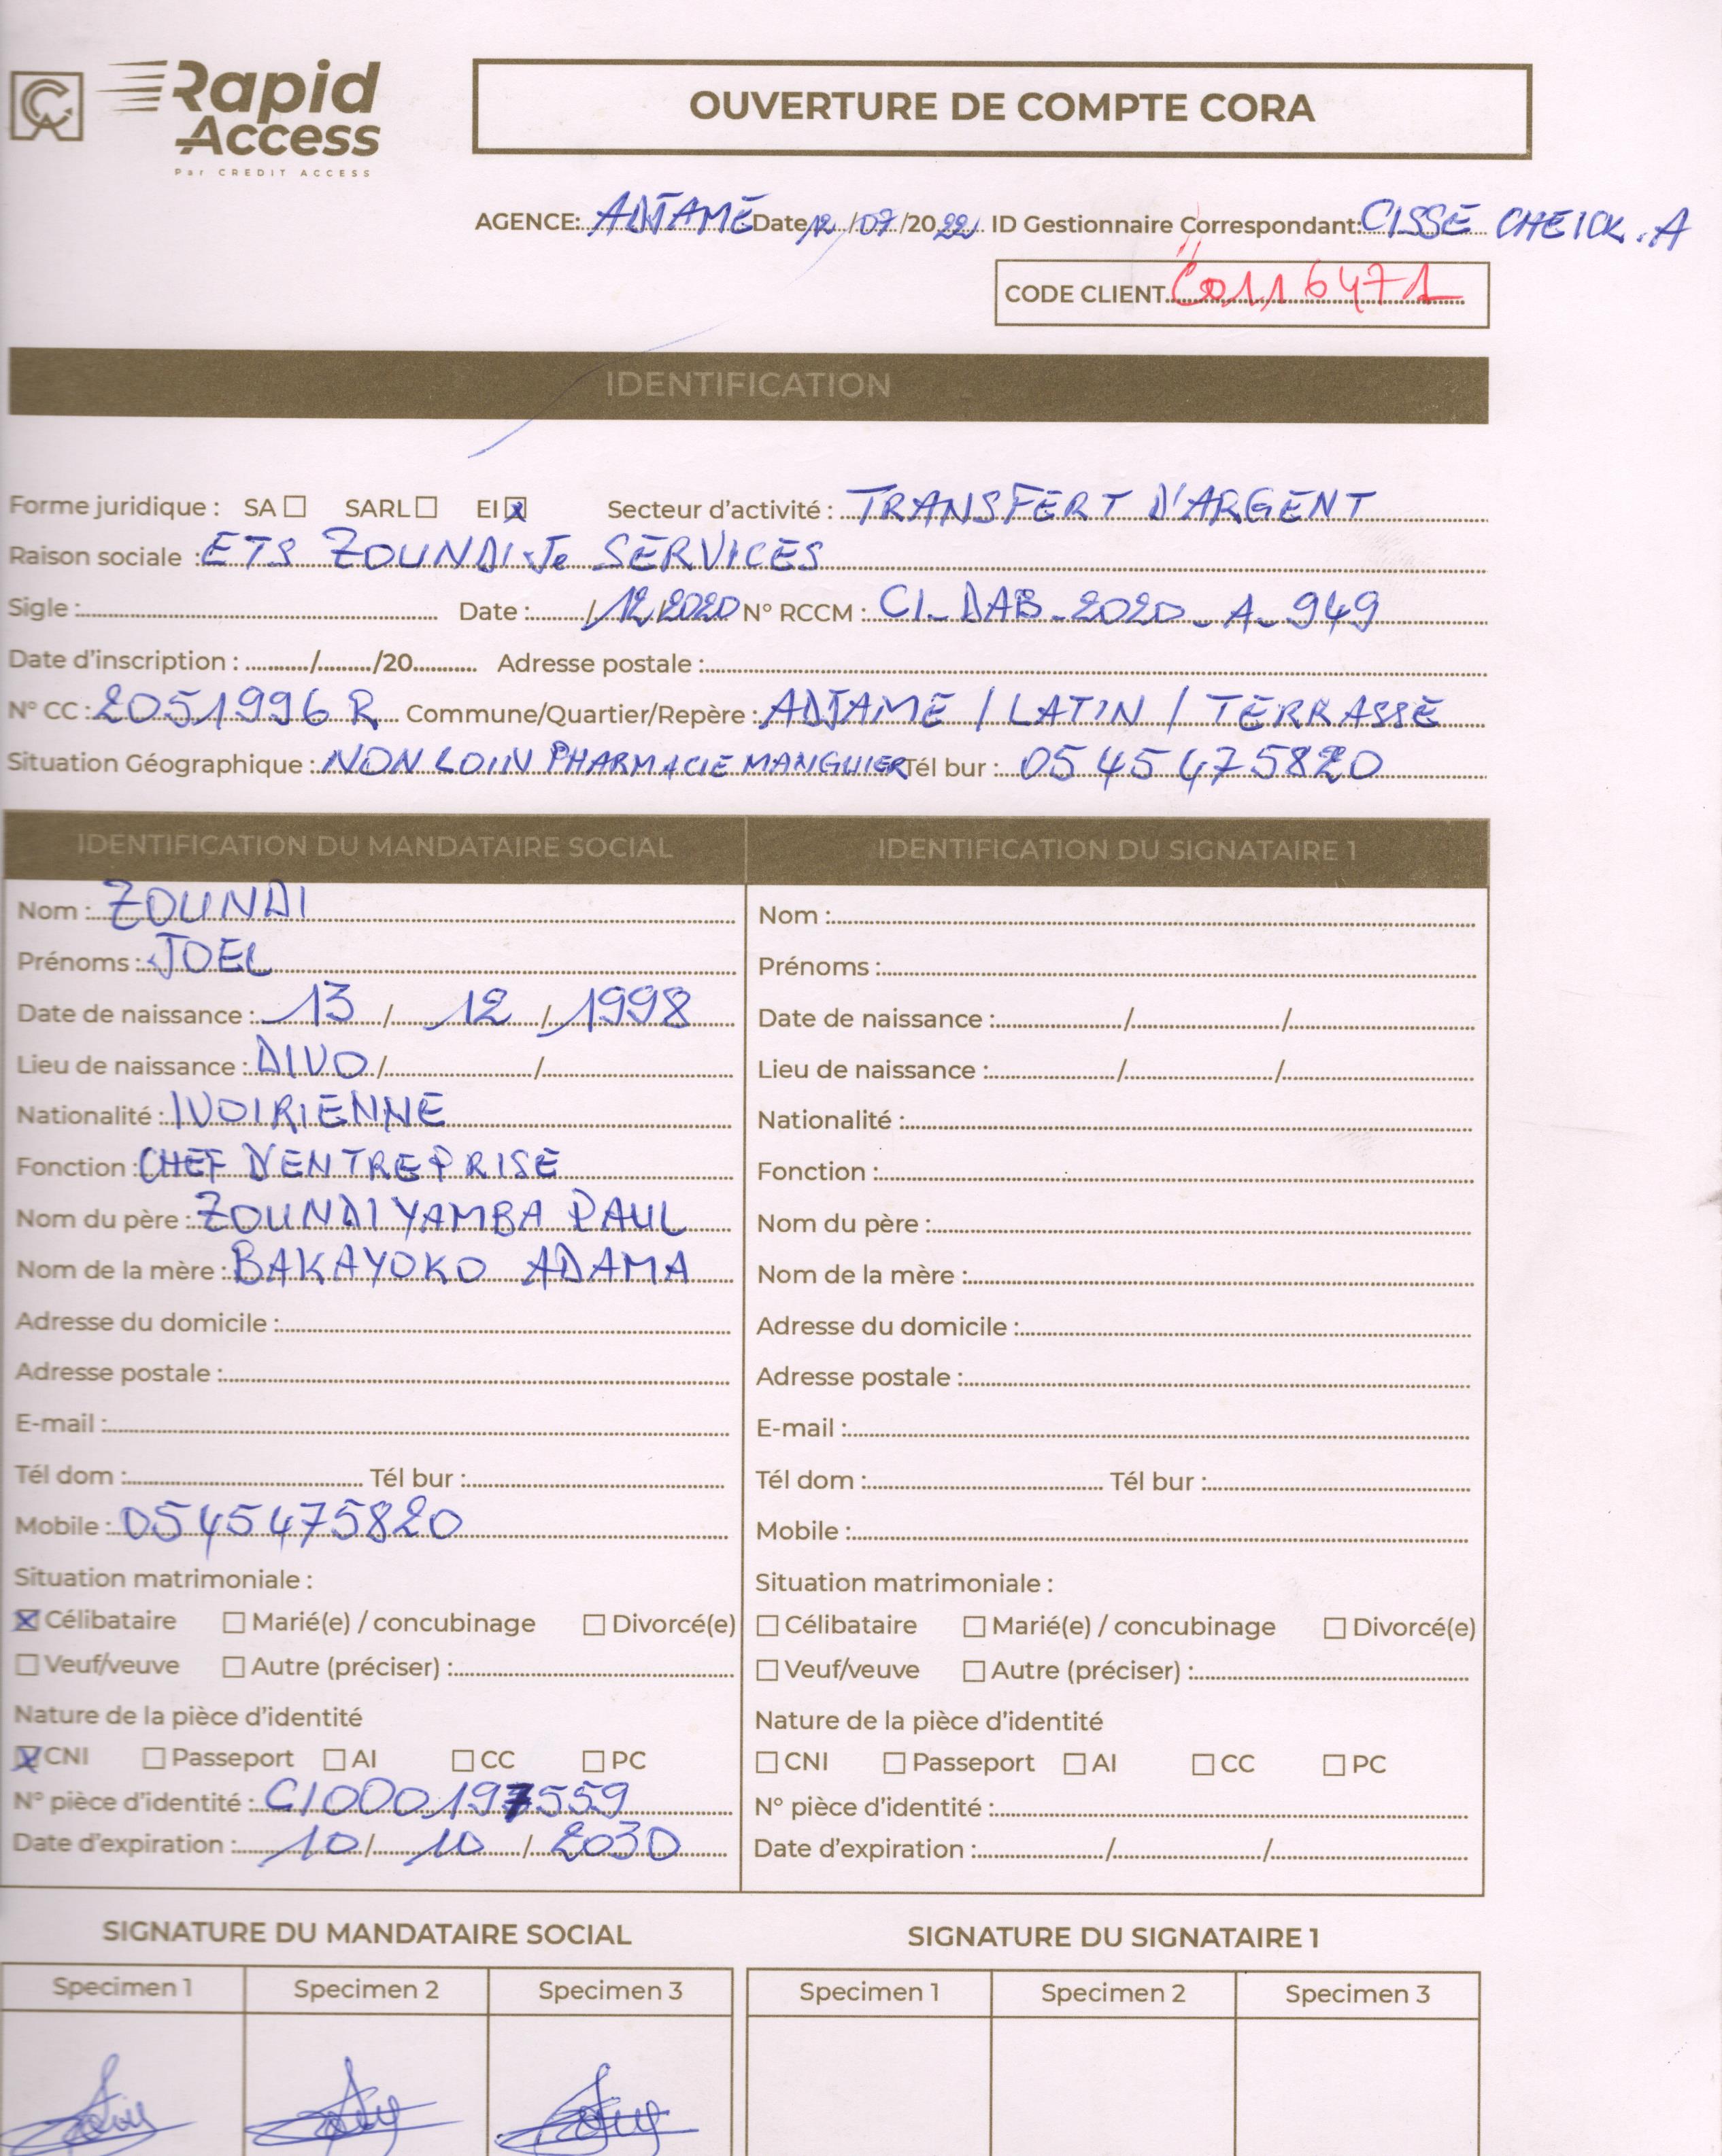 Rapid Access
Par CREDIT ACCESS
OUVERTURE DE COMPTE CORA
AGENCE: ADJAMÉ Date 12/07/2022 ID Gestionnaire Correspondant: CISSÉ CHEICK.A
CODE CLIENT C0116471
IDENTIFICATION
Forme juridique : SA ☐ SARL ☐ EI ☒ Secteur d'activité : TRANSFERT D'ARGENT
Raison sociale : ETS ZOUNDI Jo SERVICES
Sigle : Date : / 12/2020 N° RCCM : CI_DAB_2020_A_949
Date d'inscription : / /20 Adresse postale :
N° CC : 2051996 R Commune/Quartier/Repère : ADJAMÉ / LATIN / TERRASSE
Situation Géographique : NON LOIN PHARMACIE MANGUIER Tél bur : 05 45 475820
IDENTIFICATION DU MANDATAIRE SOCIAL
Nom : ZOUNDI
Prénoms : JOEL
Date de naissance : 13 / 12 / 1998
Lieu de naissance : DIVO / /
Nationalité : IVOIRIENNE
Fonction : CHEF D'ENTREPRISE
Nom du père : ZOUNDI YAMBA PAUL
Nom de la mère : BAKAYOKO ADAMA
Adresse du domicile :
Adresse postale :
E-mail :
Tél dom : Tél bur :
Mobile : 0545475820
Situation matrimoniale :
☒ Célibataire ☐ Marié(e) / concubinage ☐ Divorcé(e)
☐ Veuf/veuve ☐ Autre (préciser) :
Nature de la pièce d'identité
☒ CNI ☐ Passeport ☐ AI ☐ CC ☐ PC
N° pièce d'identité : CI000197559
Date d'expiration : 10 / 10 / 2030
IDENTIFICATION DU SIGNATAIRE 1
Nom :
Prénoms :
Date de naissance : / /
Lieu de naissance : / /
Nationalité :
Fonction :
Nom du père :
Nom de la mère :
Adresse du domicile :
Adresse postale :
E-mail :
Tél dom : Tél bur :
Mobile :
Situation matrimoniale :
☐ Célibataire ☐ Marié(e) / concubinage ☐ Divorcé(e)
☐ Veuf/veuve ☐ Autre (préciser) :
Nature de la pièce d'identité
☐ CNI ☐ Passeport ☐ AI ☐ CC ☐ PC
N° pièce d'identité :
Date d'expiration : / /
SIGNATURE DU MANDATAIRE SOCIAL
Specimen 1 Specimen 2 Specimen 3
SIGNATURE DU SIGNATAIRE 1
Specimen 1 Specimen 2 Specimen 3